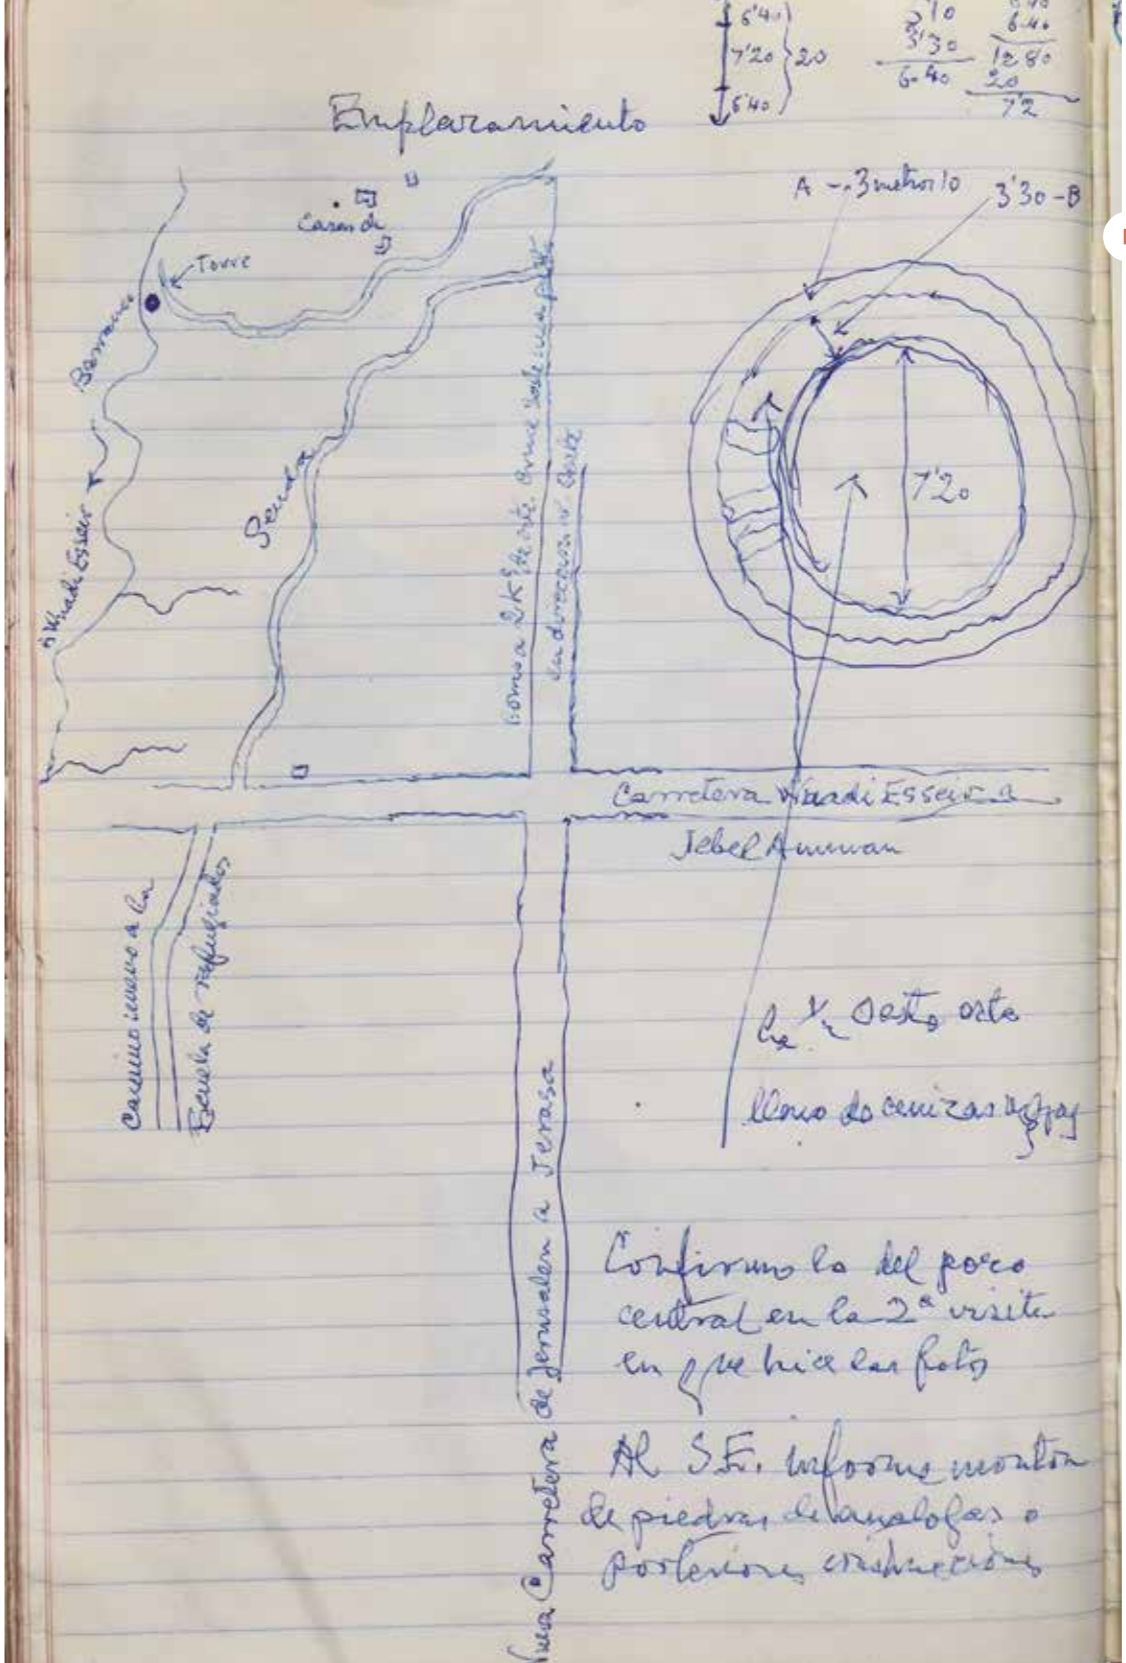 6'40
7'20 } 20
6'40
3'30
6-40
6-40
1280
20
7'2
Emplazamiento
A -- 3 metros 10
3'30-B
Casas de
Torre
Barranco
Whadi Esseir
Senda
7'20
como a 2 Ks de este cruce sale una pista
en direccion Oeste
Carretera Whadi Esseir a
Jebel Amman
Camino nuevo a la
Escuela de refugiados
Nueva Carretera de Jerusalem a Jerasa
Oeste este
lleno de cenizas
Confirmo lo del pozo
central en la 2ª visita
en que hice las fotos
Al S.E. informe monton
de piedras de analogas o
posteriores construcciones